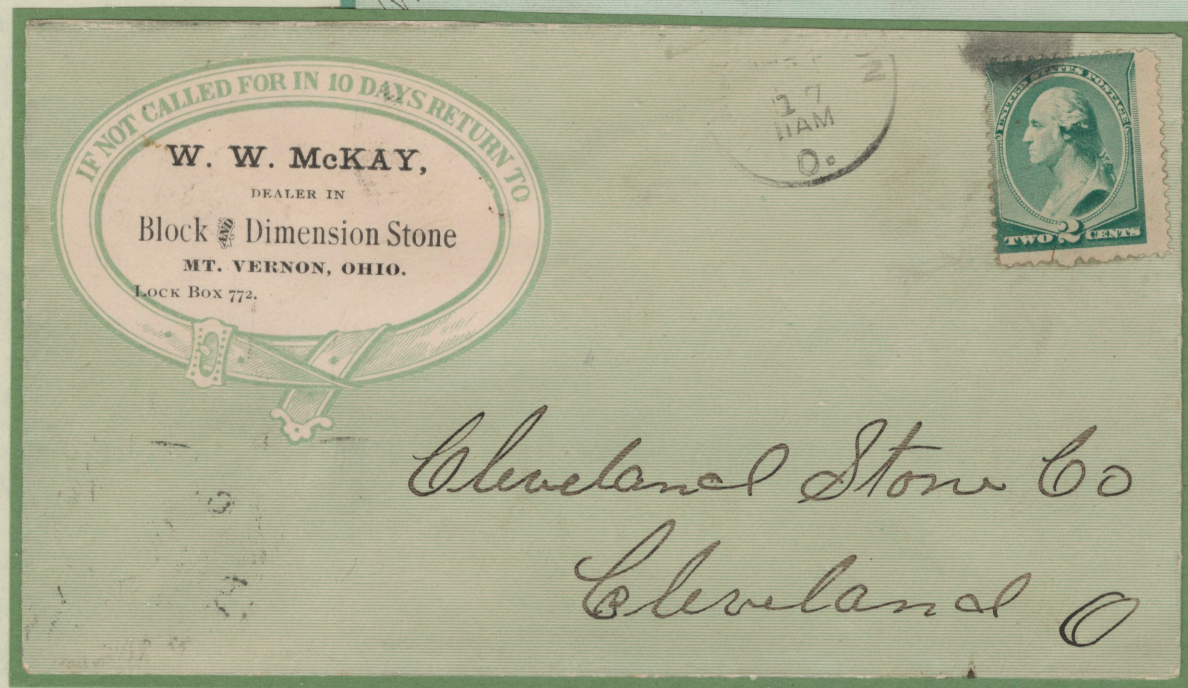 IF NOT CALLED FOR IN 10 DAYS RETURN TO
W. W. McKAY,
DEALER IN
Block AND Dimension Stone
MT. VERNON, OHIO.
Lock Box 772.
N
17
11AM
O.
UNITED STATES POSTAGE
TWO 2 CENTS
Cleveland Stone Co
Cleveland O